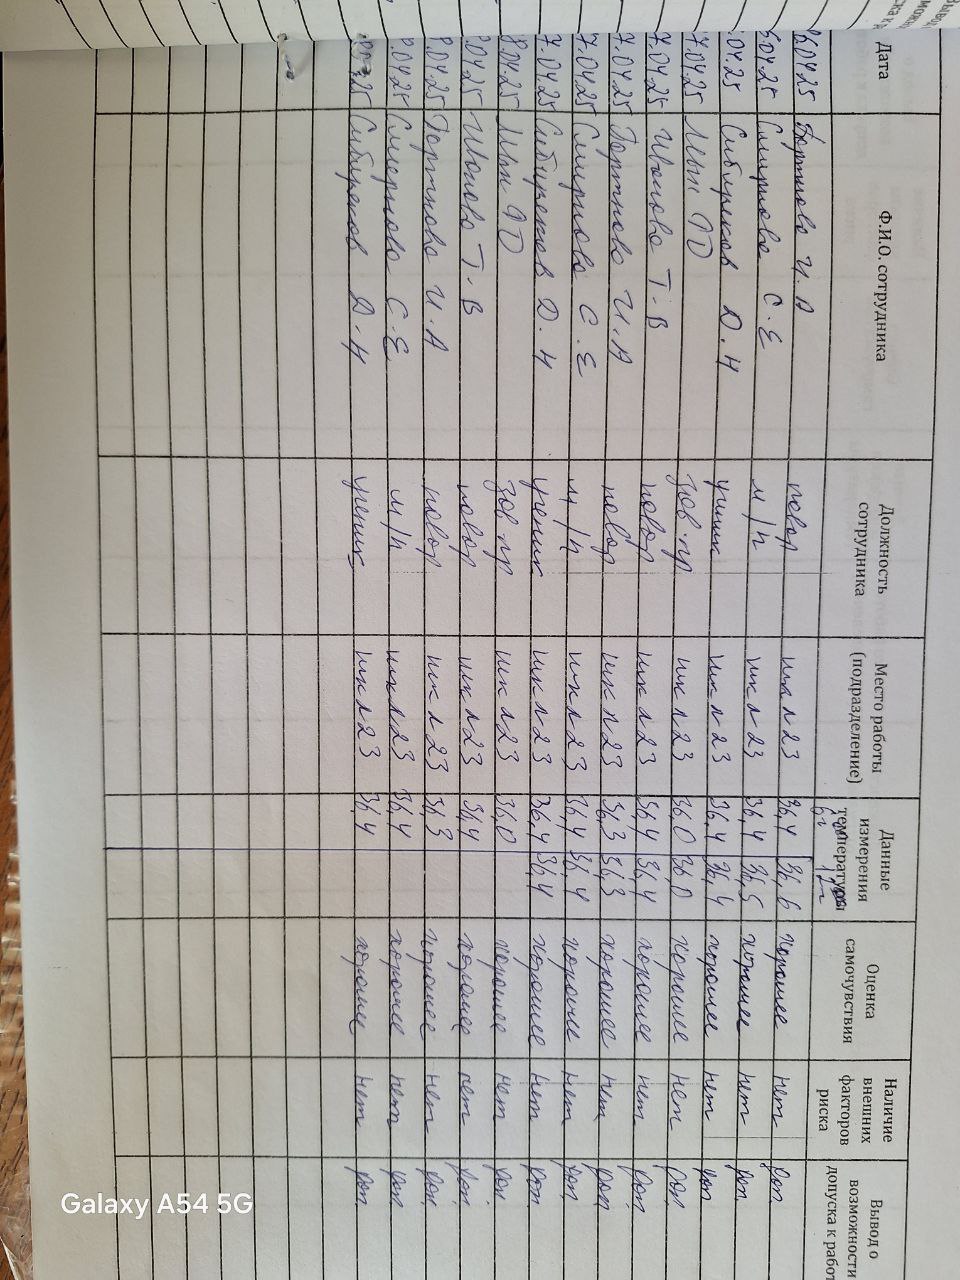 Дата Ф.И.О. сотрудника Должность сотрудника Место работы (подразделение) Данные измерения температуры Оценка самочувствия Наличие внешних факторов риска Вывод о возможности допуска к работ
04.25 Портнова И.А повар шкл 23 36,4 36,6 хорошее нет доп
04.25 Смирнова С.Е м/п шкл 23 36,4 36,5 хорошее нет доп
.04.25 Сибиряков Д.Н ученик шкл 23 36,4 36,4 хорошее нет доп
7.04.25 зав.пр шкл 23 36,0 36,0 хорошее нет доп
7.04.25 Иванова Т.В повар шкл 23 36,4 36,4 хорошее нет доп
7.04.25 Портнова И.А повар шкл 23 36,3 36,3 хорошее нет доп
7.04.25 Смирнова С.Е м/п шкл 23 36,4 36,4 хорошее нет доп
7.04.25 Сибиряков Д.Н ученик шкл 23 36,4 36,4 хорошее нет доп
8.04.25 зав.пр шкл 23 36,0 хорошее нет доп
.04.25 Иванова Т.В повар шкл 23 36,4 хорошее нет доп
8.04.25 Портнова И.А повар шкл 23 36,3 хорошее нет доп
8.04.25 Смирнова С.Е м/п шкл 23 36,4 хорошее нет доп
04.25 Сибиряков Д.Н ученик шкл 23 36,4 хорошее нет доп
Galaxy A54 5G